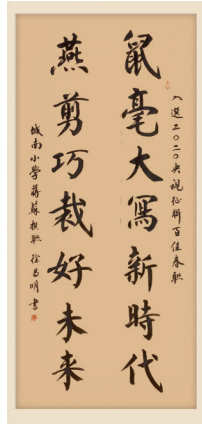 入選二〇二〇央視征聯百佳春聯
鼠毫大寫新時代
燕剪巧裁好未来
城南小學蔣蘇撰聯 徐昌明書